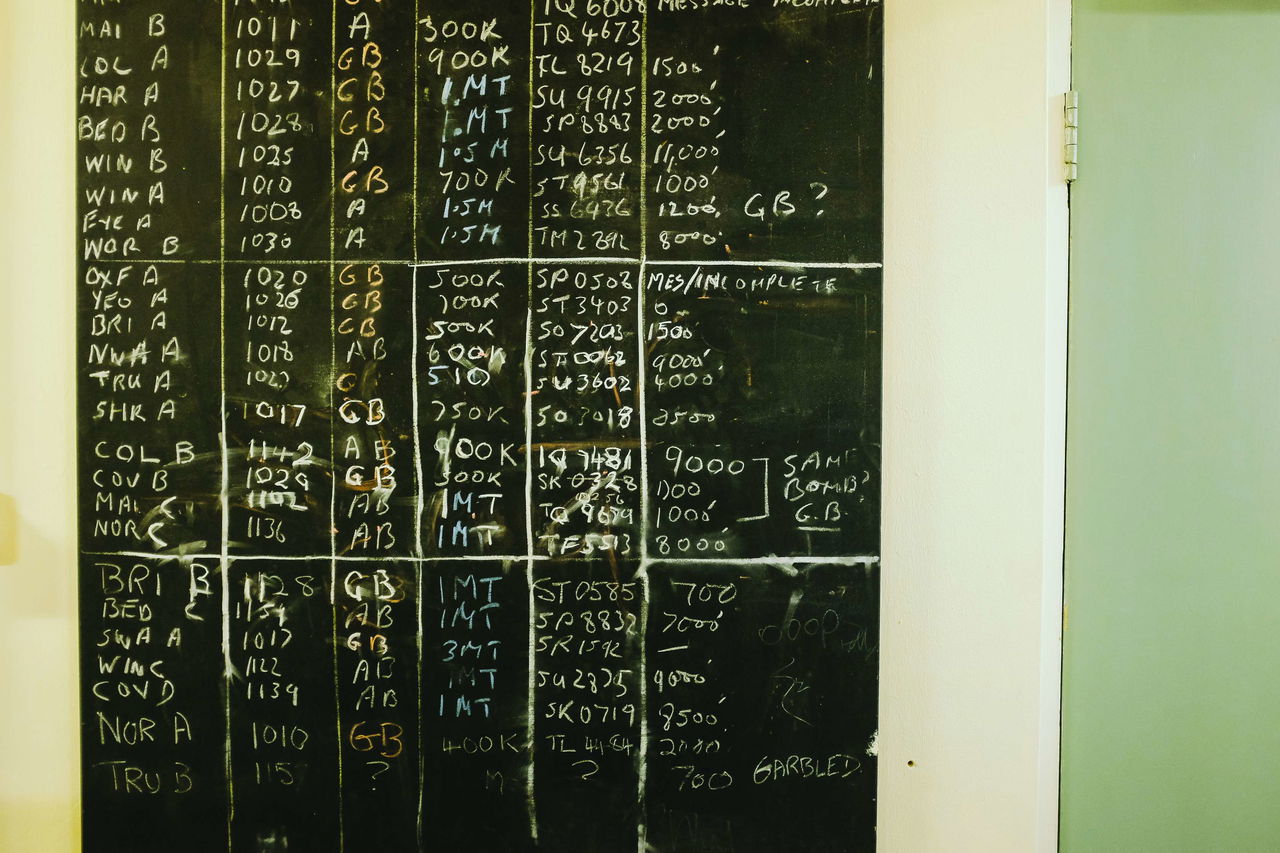 TQ 6008 MESSAGE INCOMPLETE
MAI B 1011 A 300K TQ 4673
COL A 1029 GB 900K TL 8219 1500'
HAR A 1027 GB 1.MT SU 9915 2000'
BED B 1028 GB 1.MT SP 8883 2000'
WIN B 1025 A 1.5M SU 6356 11,000'
WIN A 1010 GB 700K ST 9561 1000'
EYE A 1008 A 1.5M SS 6436 1200' GB?
WOR B 1030 A 1.5M TM 2892 8000'
OXF A 1020 GB 500K SP 0508 MES/INCOMPLETE
YEO A 1026 GB 700K ST 3403 0
BRI A 1012 GB 500K SO 7203 1500'
NWA A 1018 AB 600K ST 0062 9000'
TRU A 510 SU 3602 4000'
SHR A 1017 GB 750K SO 3018 2500'
COL B 1142 AB 900K TQ 7481 9000 SAME
COV B 1029 GB 500K SK 0328 1100 BOMB?
MAI C 1102 AB 1MT TQ 9679 1000' G.B.
NOR C 1136 AB 1MT TF 5513 8000'
BRI B 1128 GB 1MT ST 0585 700
BED C 1154 AB 1MT SP 8832 7000'
SWA A 1017 GB 3MT SR 1592 —
WIN C 1122 AB 1MT SU 2875 9000'
COV D 1139 AB 1MT SK 0719 8500'
NOR A 1010 GB 400K TL 4484 2000
TRU B 1157 ? M ? 700 GARBLED